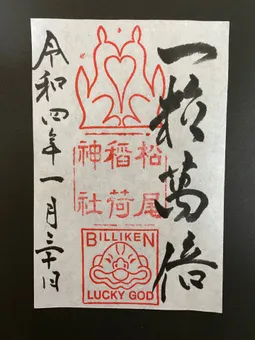 一粒萬倍
松尾
稲荷
神社
BILLIKEN
LUCKY GOD
令和四年一月三十日